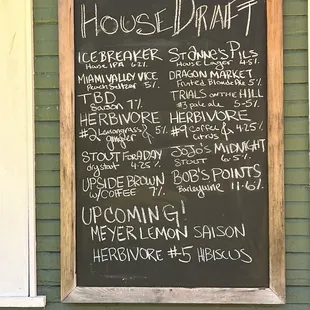 HOUSE DRAFT
ICEBREAKER
House IPA 6.2%
MIAMI VALLEY VICE
Peach Seltzer 5%
TBD
Saison 7%
HERBIVORE
#2 Lemongrass & 5%
ginger
STOUT FOR A DAY
dry stout 4.25%
UPSIDE BROWN
w/COFFEE 7%
ST ANNE'S PILS
House Lager 4.5%
DRAGON MARKET
Fruited Blonde Ale 5%
TRIALS ON THE HILL
#3 pale ale 5.5%
HERBIVORE
#9 Coffee & 4.25%
Citrus
JOJO'S MIDNIGHT
STOUT 6.5%
BOB'S POINTS
Barleywine 11.6%
UPCOMING!
MEYER LEMON SAISON
HERBIVORE #5 HIBISCUS